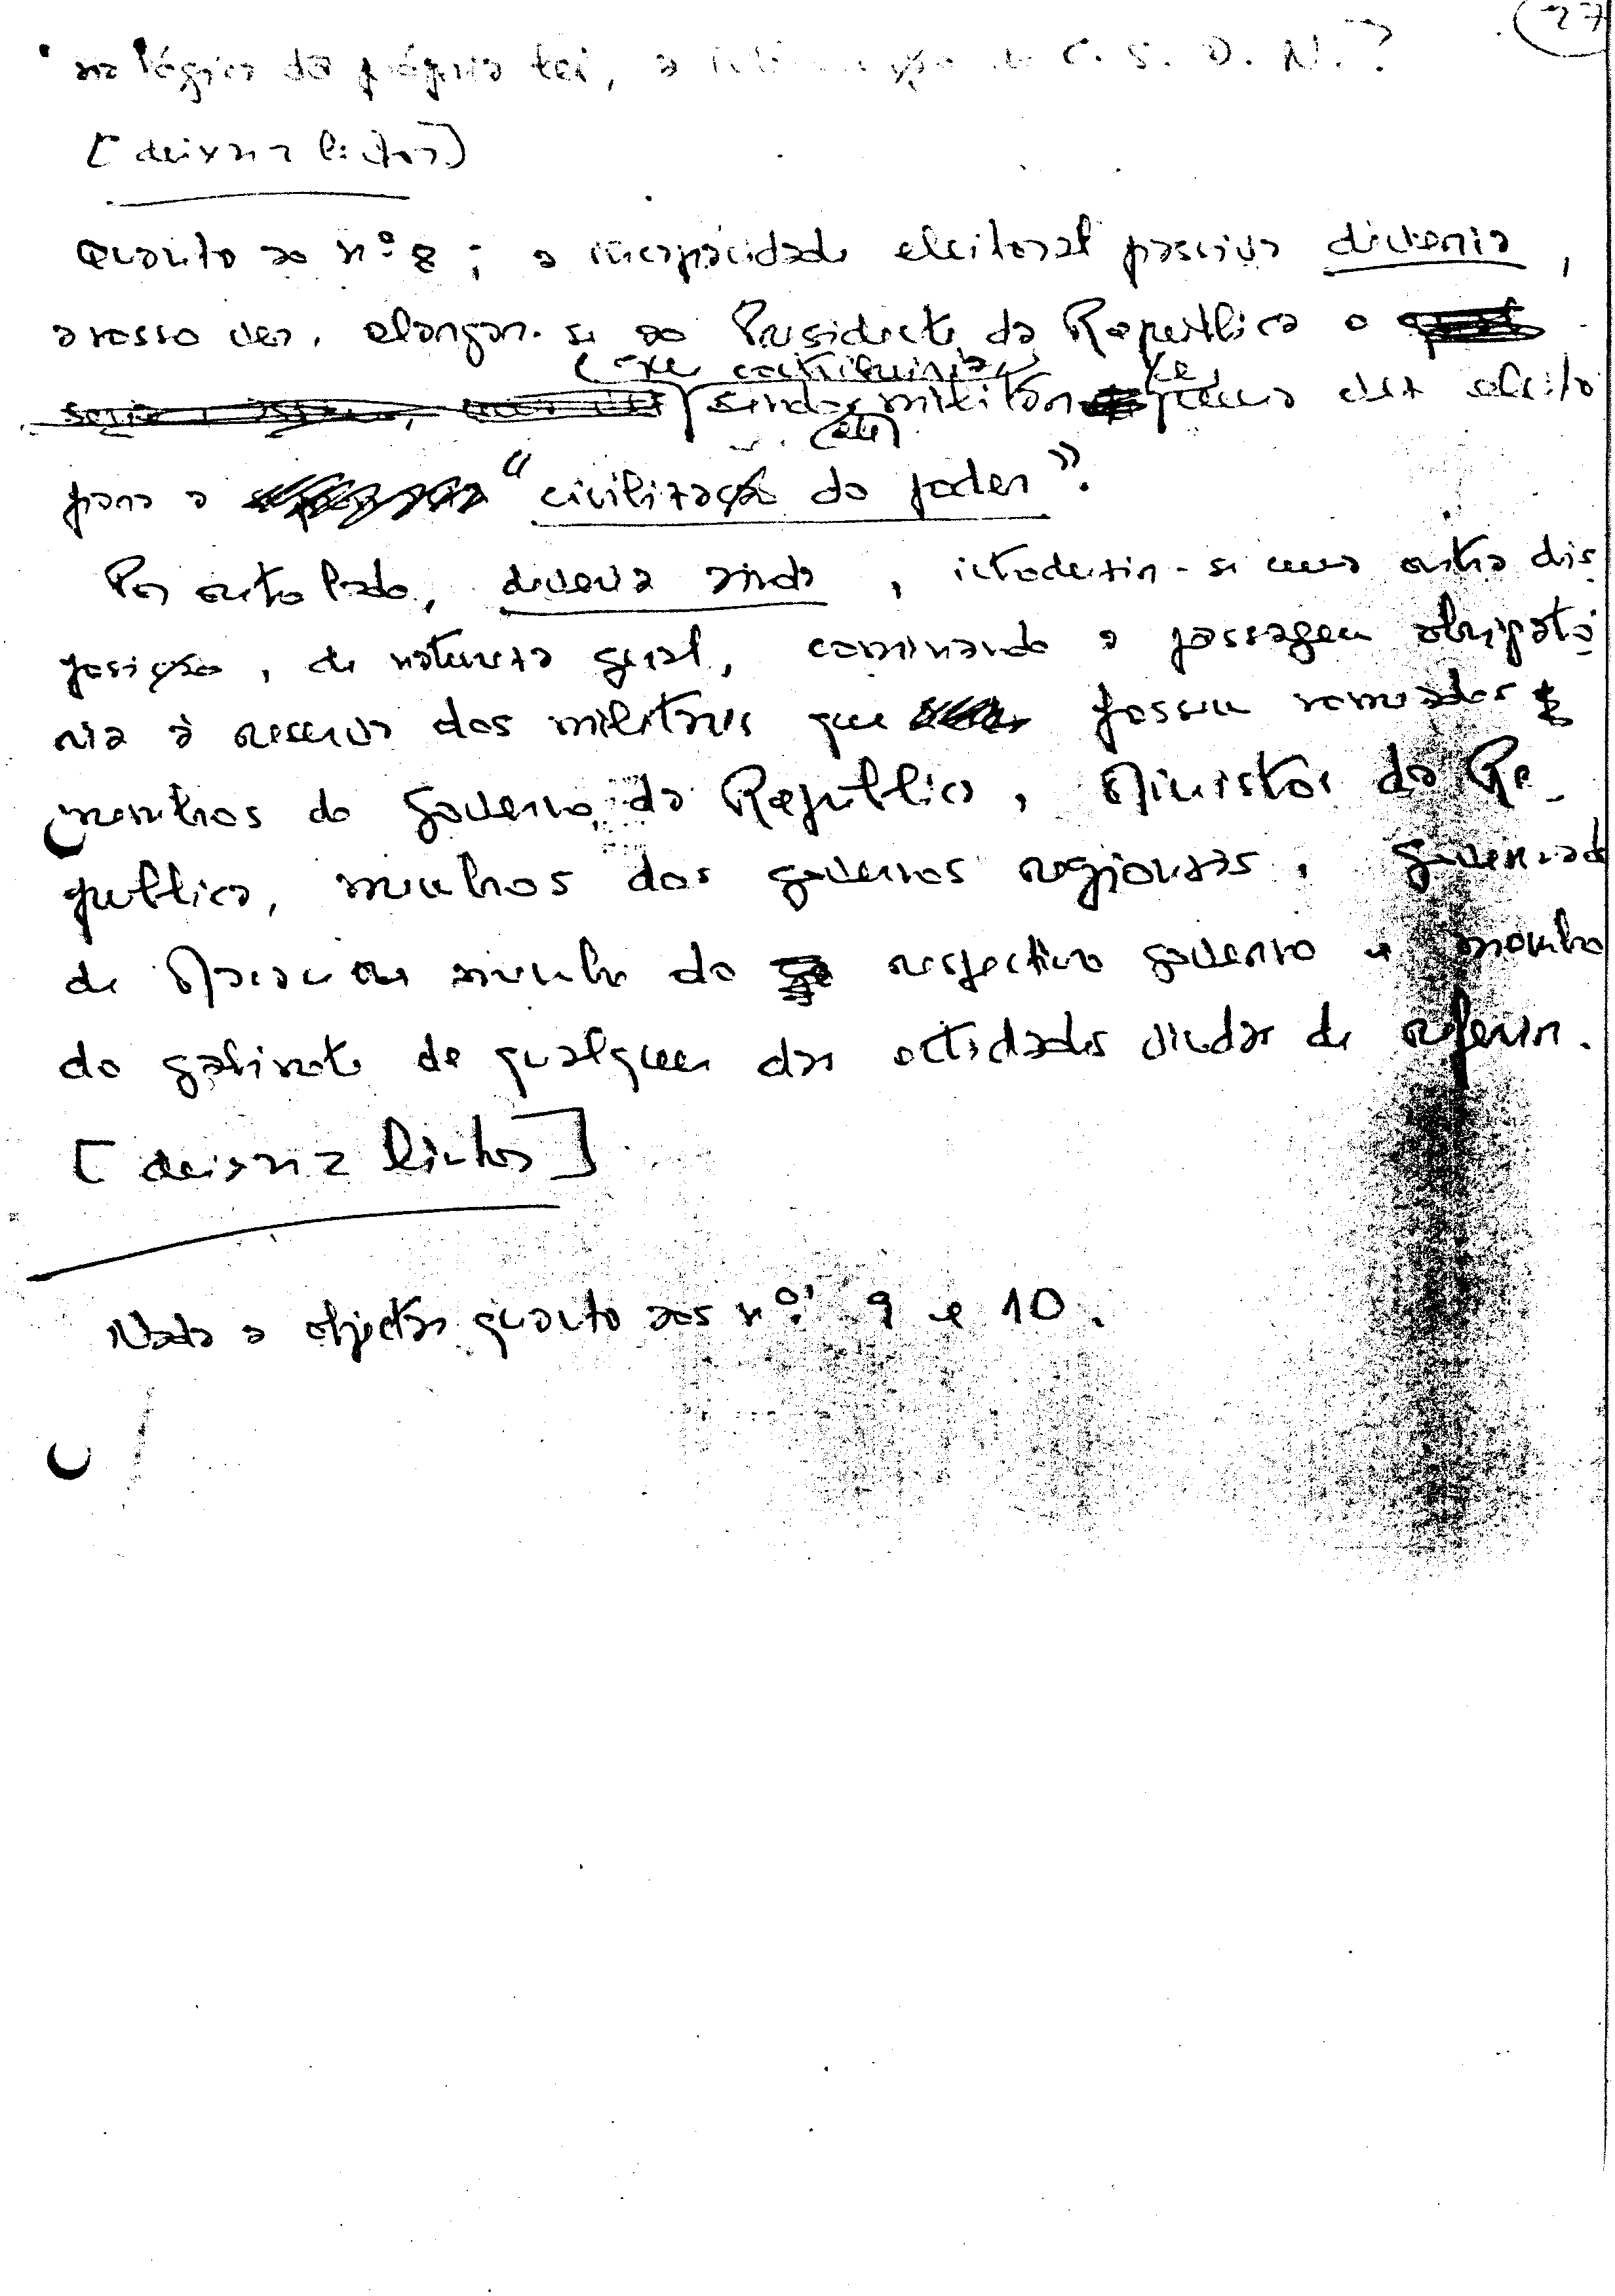 27
na lógica da própria lei, a C. S. D. N.?
[deixar 2 linhas]
Quanto ao nº 8; a incapacidade eleitoral passiva deveria,
a nosso ver, alargar-se ao Presidente da República o
que contribuiria
sendo militar uma vez eleito
(ate)
para a "civilização do poder".
Por outro lado, deveria ainda, introduzir-se uma outra dis
posição, de natureza geral, cominando a passagem obrigató
ria à reserva dos militares que fossem nomeados
membros do governo da República, Ministros da Re-
pública, membros dos governos regionais, Governad
de Macau ou membro do respectivo governo e membro
do gabinete de qualquer das entidades vindas de referir.
[deixar 2 linhas]
Nada a objectar quanto aos nºs 9 e 10.